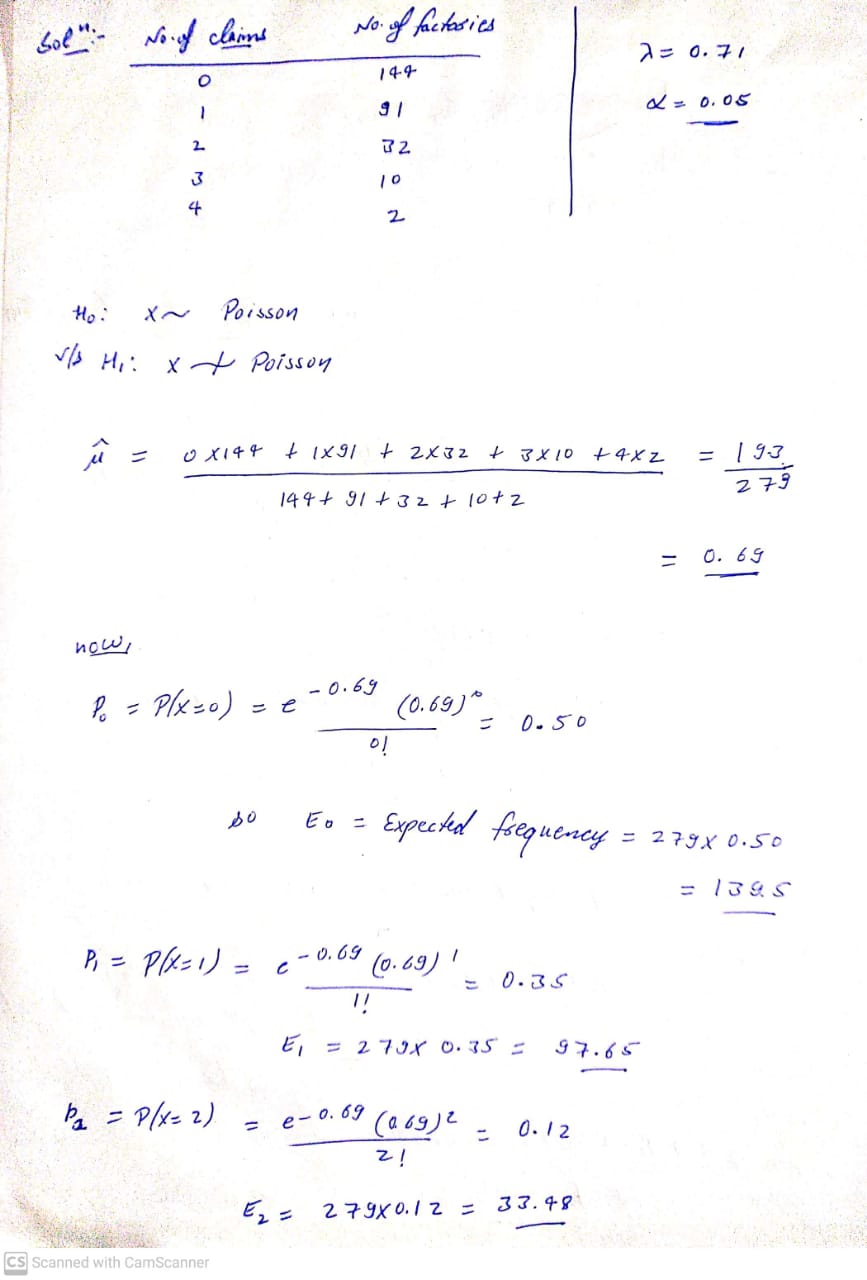 Solⁿ:- No. of claims No. of factories
λ = 0.71
0 144
α = 0.05
1 91
2 32
3 10
4 2
H₀: X ~ Poisson
v/s H₁: X ≁ Poisson
μ̂ = 0×144 + 1×91 + 2×32 + 3×10 + 4×2 = 193
144 + 91 + 32 + 10 + 2 279
= 0.69
now,
P₀ = P(X=0) = e^-0.69 (0.69)⁰ = 0.50
0!
so E₀ = Expected frequency = 279 × 0.50
= 139.5
P₁ = P(X=1) = e^-0.69 (0.69)¹ = 0.35
1!
E₁ = 279 × 0.35 = 97.65
P₂ = P(X=2) = e^-0.69 (0.69)² = 0.12
2!
E₂ = 279×0.12 = 33.48
CS Scanned with CamScanner